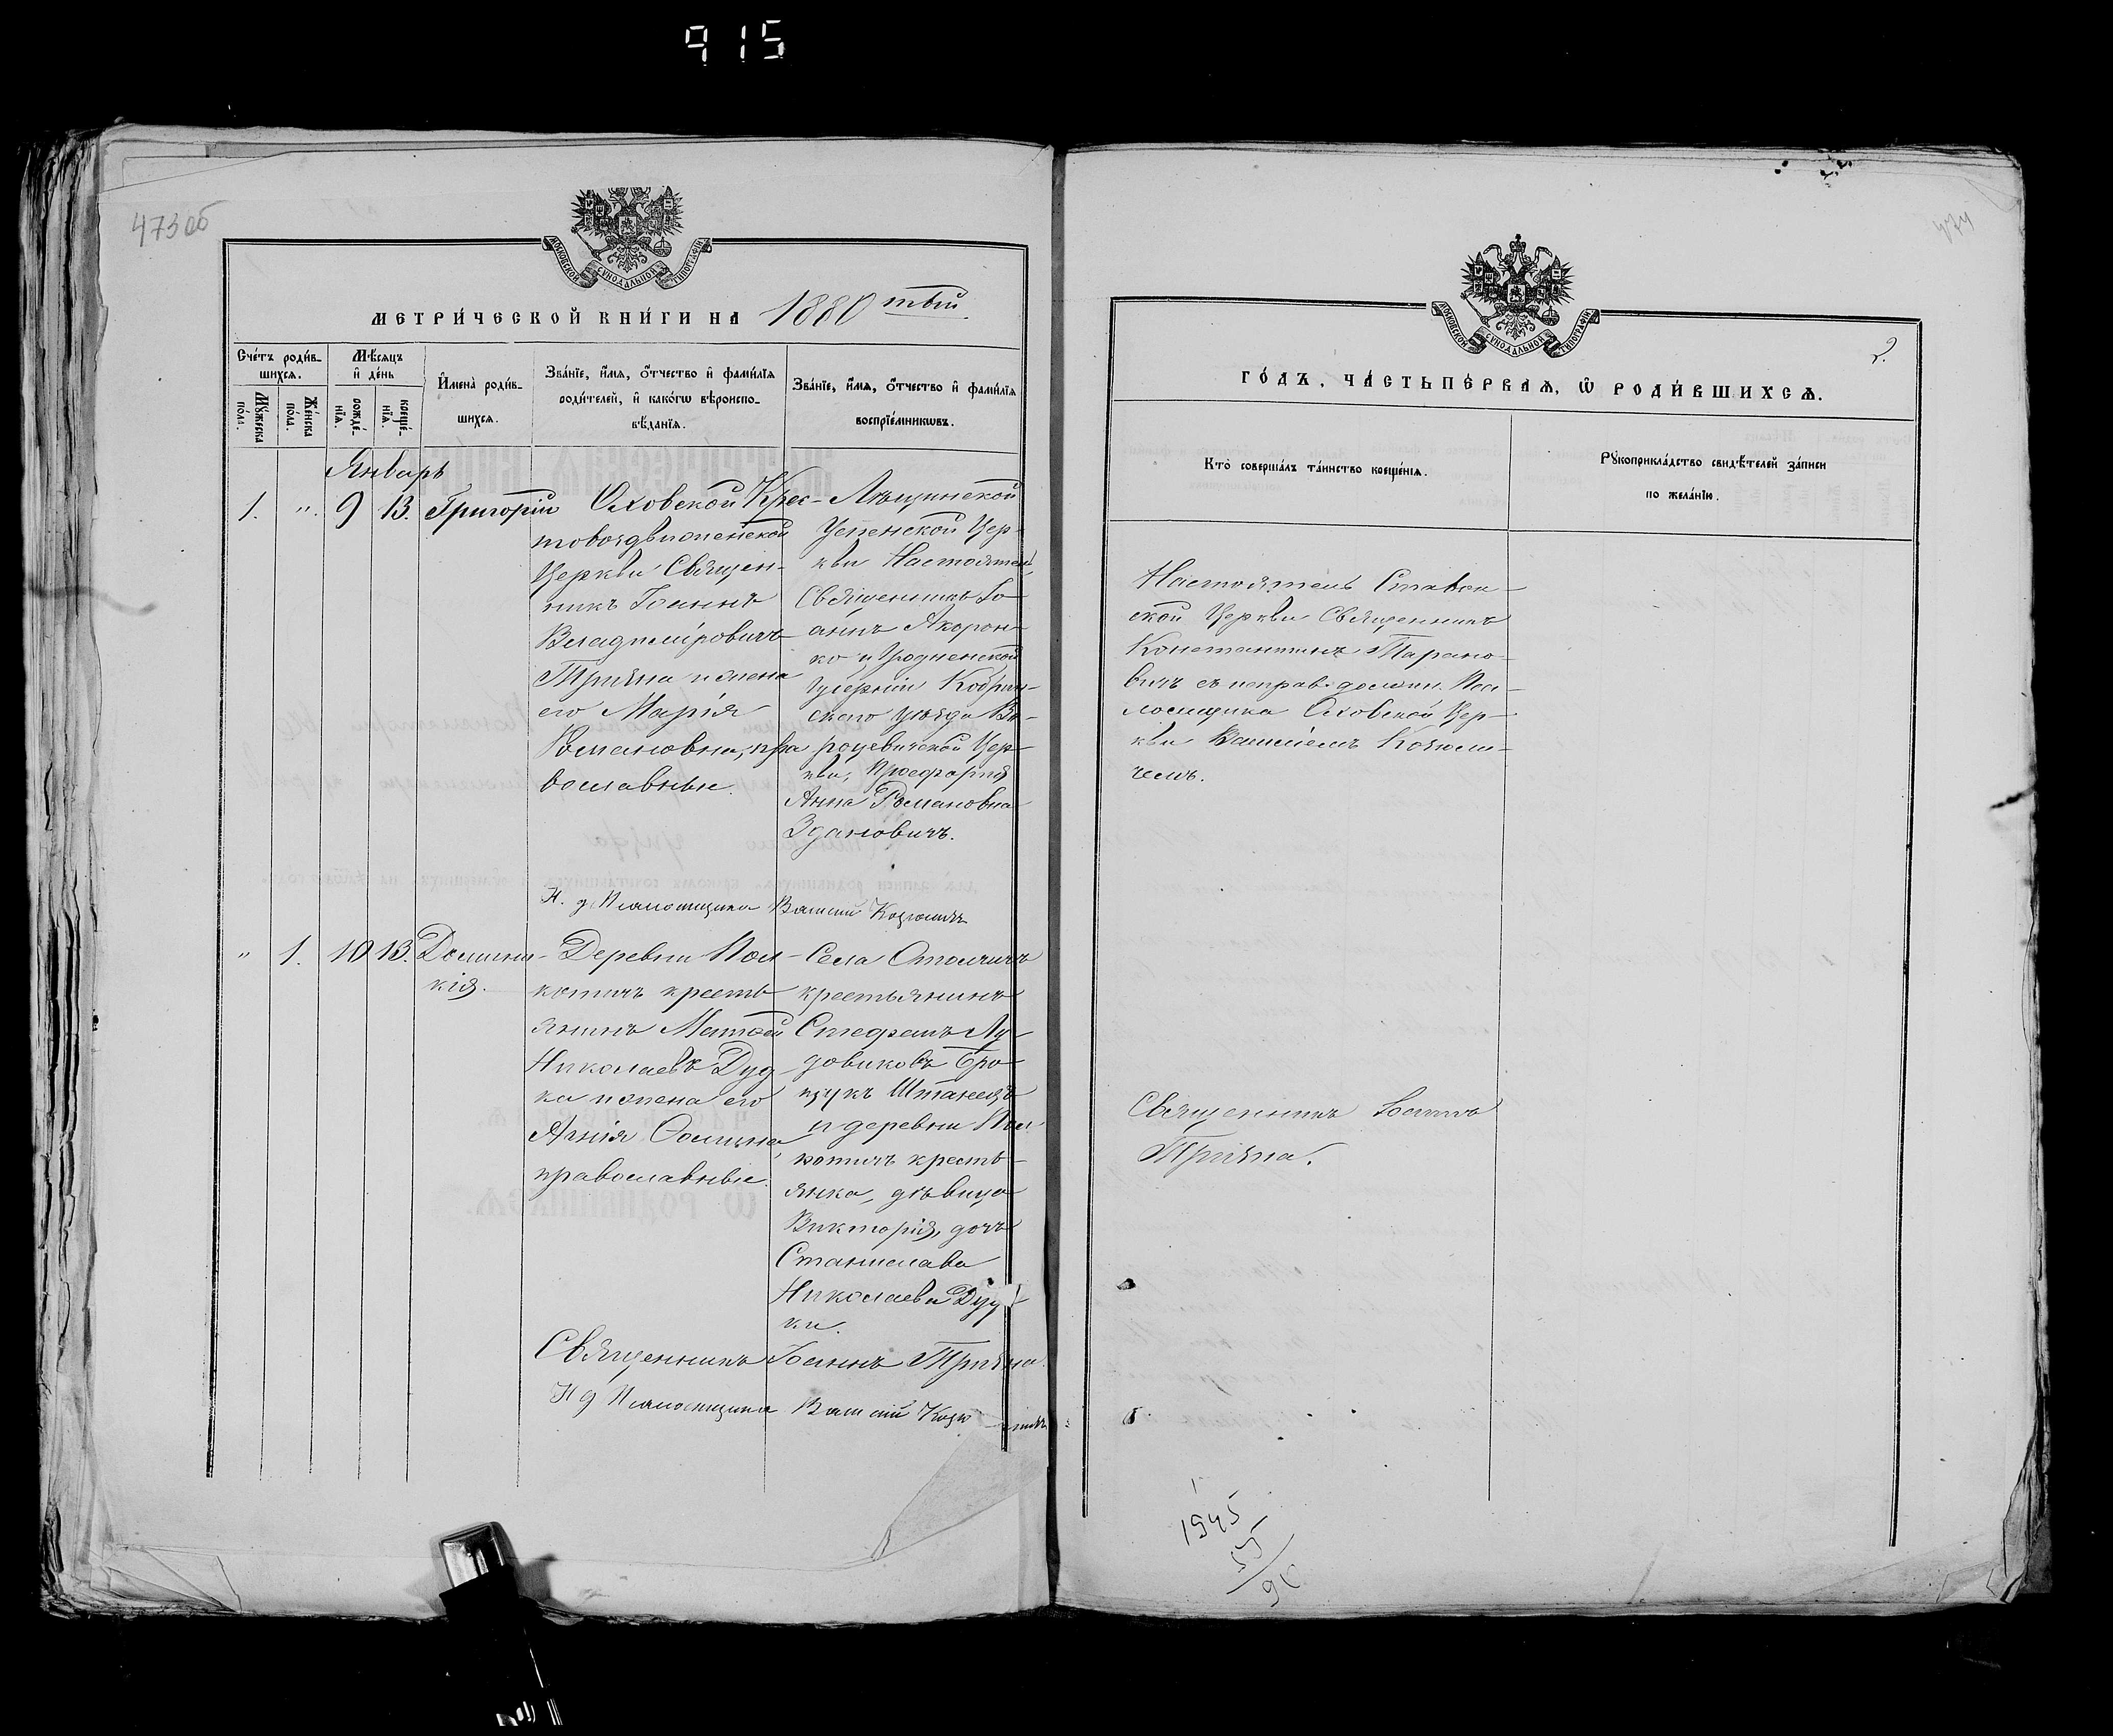 915
473 об
МОСКОВСКОЙ СУНОДАЛЬНОЙ ТИПОГРАФІИ
МЕТРИ́ЧЕСКОЙ КНИ́ГИ НА 1880 тый
Сче́тъ роди́в-
шихсѧ.
Мꙋ́жеска
по́ла.
Же́нска
по́ла.
Мѣ́сѧцъ
и҆ де́нь
рожде́-
нїѧ.
креще́-
нїѧ.
И҆мена̀ роди́в-
шихсѧ.
Зва́нїе, и҆́мѧ, ѻ҆́тчество и҆ фами́лїѧ
роди́телей, и҆ како́гѡ вѣроиспо-
вѣ́данїѧ.
Зва́нїе, и҆́мѧ, ѻ҆́тчество и҆ фами́лїѧ
воспрїе́мникѡвъ.
Январь
1. " 9 13. Григорій
Оховской Крес-
товоздвиженской
Церкви Священ-
никъ Іоаннъ
Владиміровичъ
Прияна и жена
его Марія
Романовна, пра
вославные.
Лѣщинской
Успенской Цер-
кви Настоятель,
Священникъ Іо-
аннъ
ко и Гродненской
Губерніи Кобрин-
скаго уѣзда Во-
роцевичской Цер-
кви, Просфорня
Анна Романовна
Здановичъ.
И. д. Псаломщика Василій Козюличъ
" 1. 10 13. Домини-
кія.
Деревни Пол-
котичъ кресть
янинъ Матвей
Николаевъ Дуд
ка и жена его
Агнія Фомина,
православные.
Села Стошичъ
крестьянинъ
Стефанъ Лу-
довиковъ
и деревни Пол
котичъ кресть-
янка, дѣвица
Викторія, дочь
Станислава
Николаева Дуд-
ки.
Священникъ Іоаннъ Прияна.
И д Псаломщика Василій Козюличъ
474
МОСКОВСКОЙ СУНОДАЛЬНОЙ ТИПОГРАФІИ
2.
ГО́ДЪ, ЧА́СТЬ ПЕ́РВАѦ, Ѡ҆ РОДИ́ВШИХСѦ.
Кто̀ соверша́лъ та́инство креще́нїѧ.
Рꙋкоприкла́дство свидѣ́телей за́писи
по жела́нїю.
Настоятель Ставок-
ской Церкви Священникъ
Константинъ Тарано-
вичъ съ исправ. должн. Пса-
ломщика Оховской Цер-
кви Василіемъ Козюли-
чемъ.
Священникъ Іоаннъ
Прияна.
1945